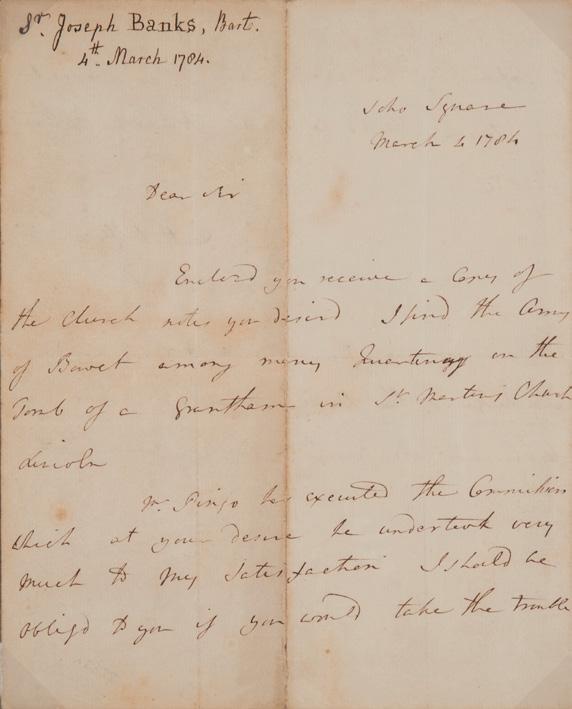 Sr. Joseph Banks, Bart.
4th. March 1784.
Soho Square
March 4 1784
Dear Sir
Enclosd you receive a Copy of
the Church notes you desird I find the Arms
of Bowet among many Quarterings on the
Tomb of a Grantham in St Martins Church
Lincoln
Mr Pingo has executed the Commission
which at your desire he undertook very
much to my satisfaction I should be
obligd to you if you would take the trouble